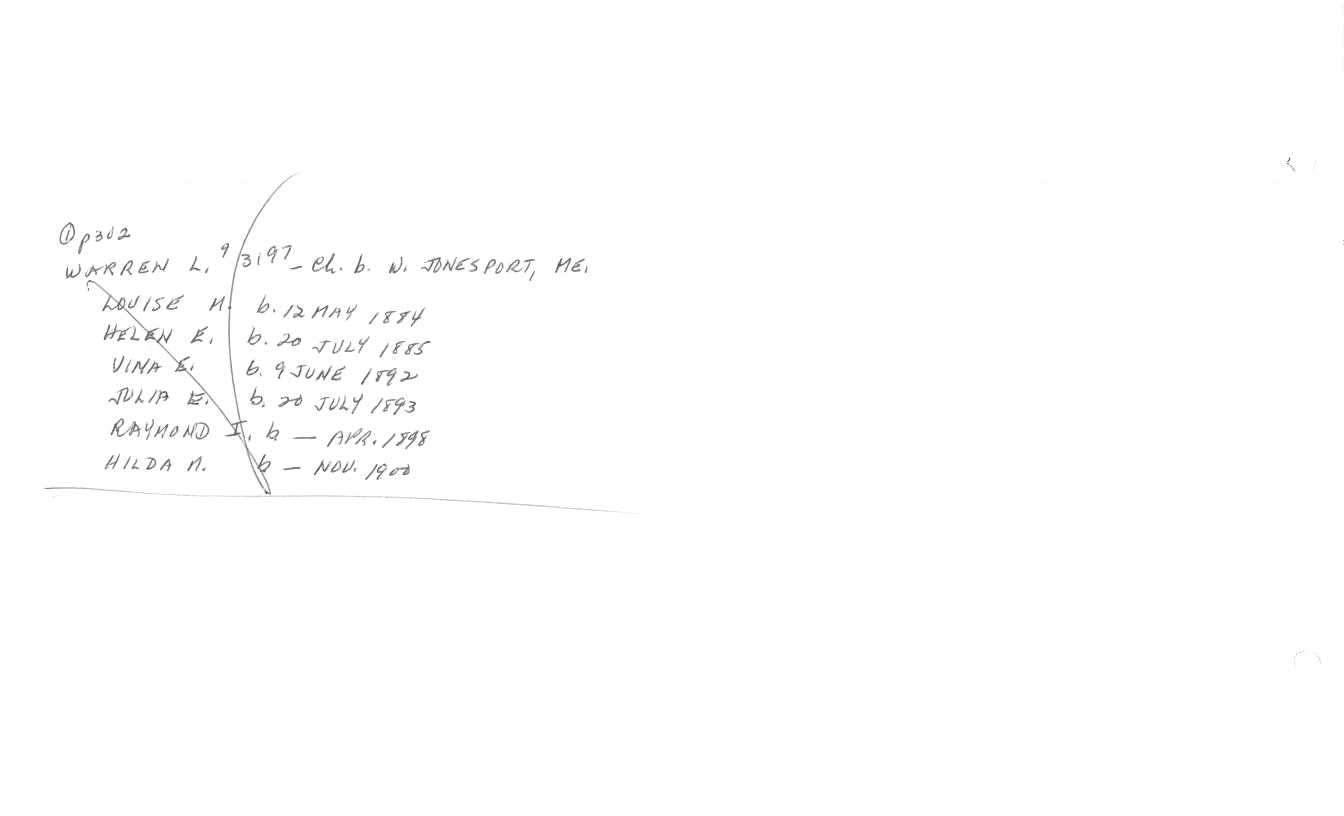 ① p302
WARREN L. 9 3197 - Ch. b. W. JONESPORT, ME.
LOUISE M. b. 12 MAY 1884
HELEN E. b. 20 JULY 1885
VINA E. b. 9 JUNE 1892
JULIA E. b. 20 JULY 1893
RAYMOND I. b — APR. 1898
HILDA M. b — NOV. 1900